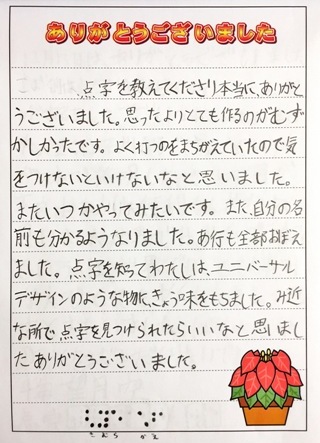 ありがとうございました
点字を教えてくださり本当に、ありがと
うございました。思ったよりとても作るのがむず
かしかったです。よく打つのをまちがえていたので気
をつけないといけないなと思いました。
またいつかやってみたいです。また、自分の名
前も分かるようなりました。あ行も全部おぼえ
ました。点字を知ってわたしは、ユニバーサル
デザインのような物に、きょう味をもちました。み近
な所で点字を見つけられたらいいなと思いまし
たありがとうございました。
きむら かえ